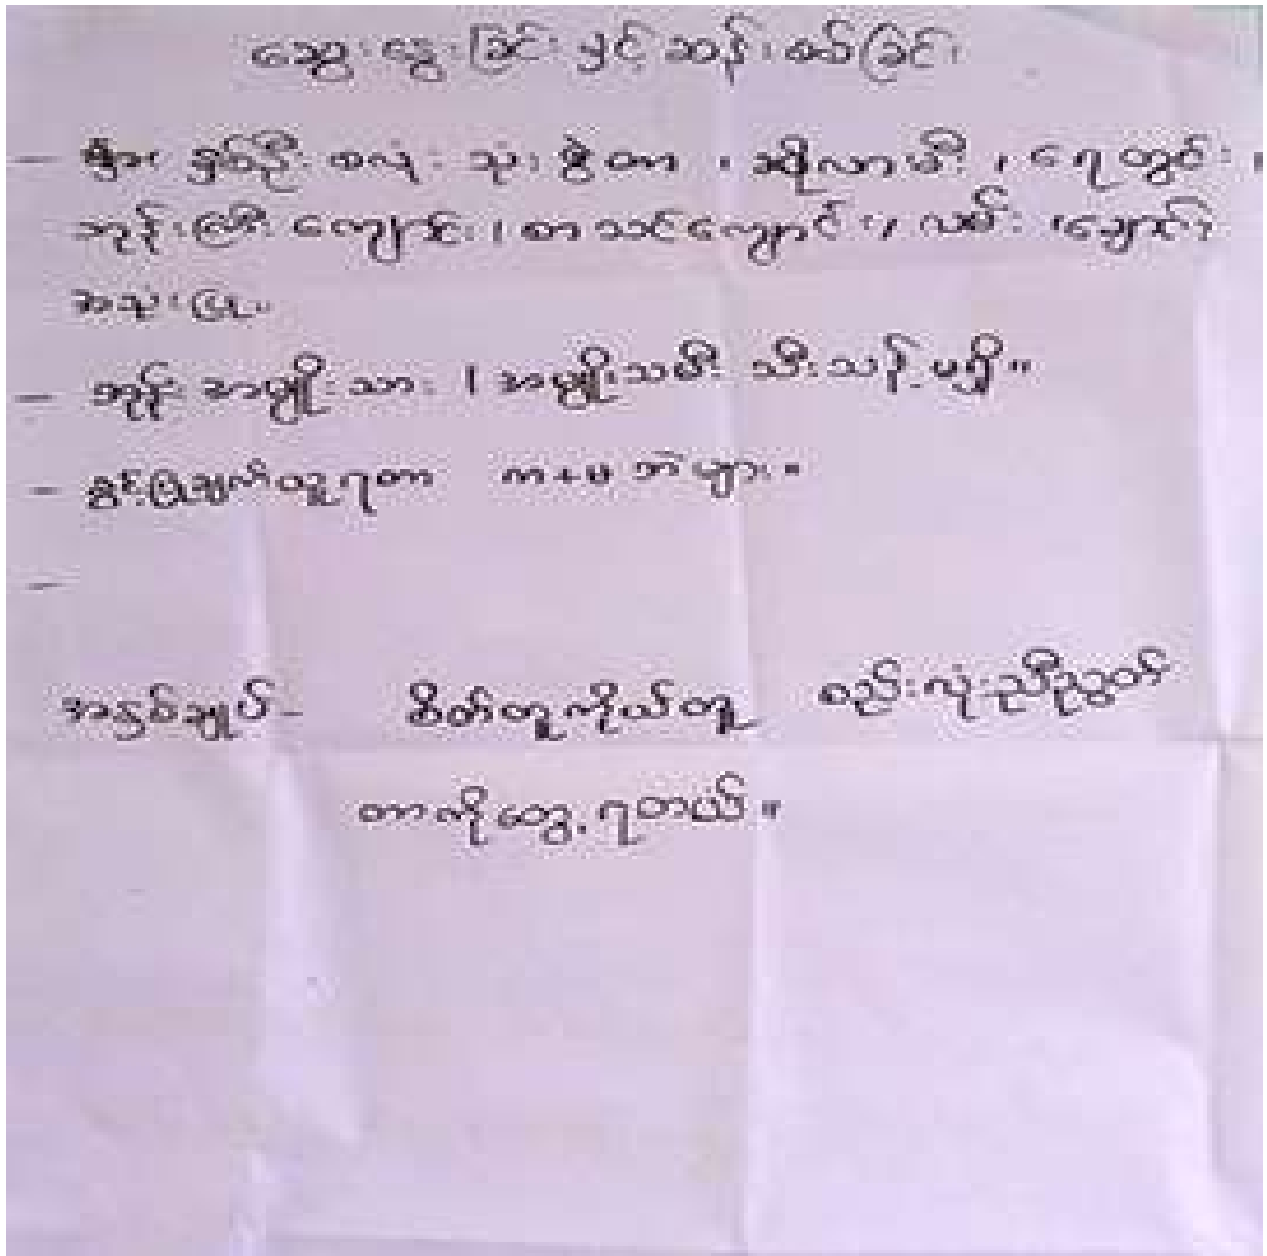 ဆွေးနွေးခြင်းနှင့် ဆန်းစစ်ခြင်း
- ရွာ စလုံး သုံးစွဲတာ ၊ ဆိုလာမီး ၊ ရေတွင်း ၊
ဘုန်းကြီးကျောင်း ၊ စာသင်ကျောင်း ၊ လမ်း
အသုံးပြု။
- အမျိုးသား ၊ အမျိုးသမီး သီးသန့် မရှိ။
- ခွင့်ပြုချက်ယူရတာ က+မ ဘဲများ။
-
အနှစ်ချုပ်- စိတ်တူကိုယ်တူ စည်းလုံးညီညွတ်
တာကိုတွေ့ရတယ်။